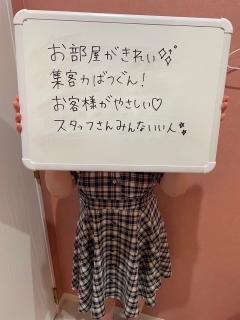 お部屋がきれい✨
集客力ばつぐん!
お客様がやさしい♡
スタッフさんみんないい人✨